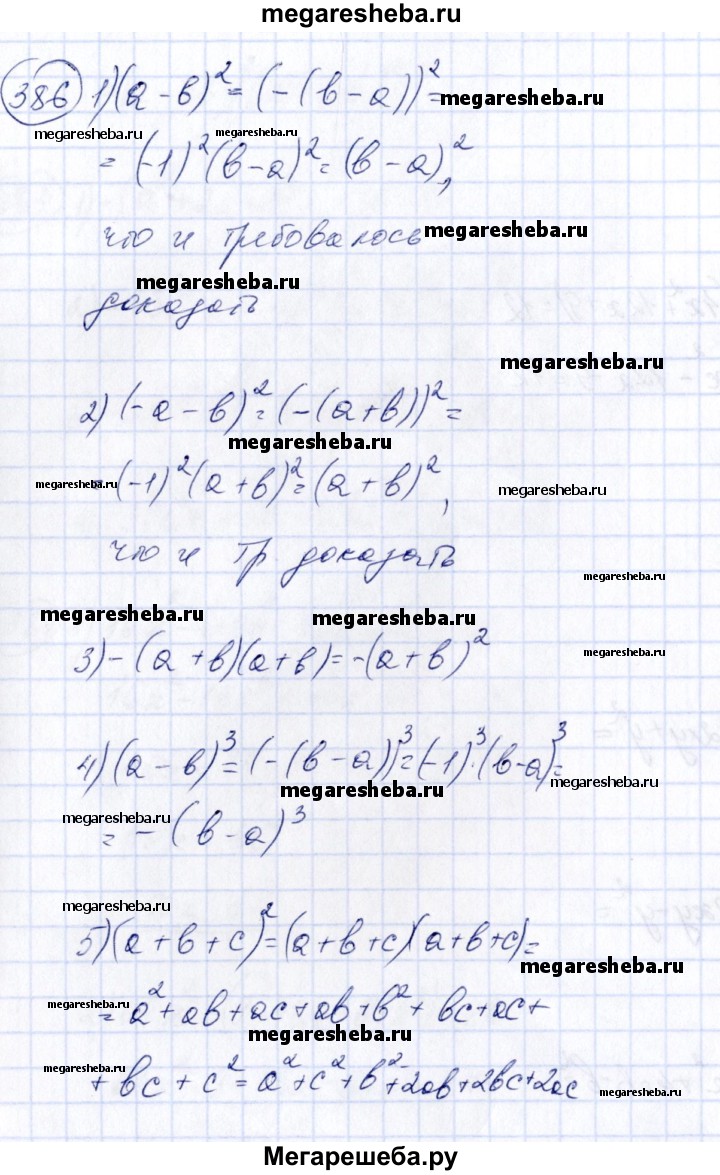 megaresheba.ru
386 1) (a - в)² = (-(в - a))² = megaresheba.ru
megaresheba.ru megaresheba.ru
= (-1)² (в - a)² = (в - a)²,
что и требовалось megaresheba.ru
megaresheba.ru
доказать
megaresheba.ru
2) (-a - в)² = (-(a + в))² =
megaresheba.ru
megaresheba.ru = (-1)² (a + в)² = (a + в)², megaresheba.ru
что и тр. доказать
megaresheba.ru
megaresheba.ru megaresheba.ru
3) -(a + в)(a + в) = -(a + в)² megaresheba.ru
4) (a - в)³ = (-(в - a))³ = (-1)³ · (в - a)³ =
megaresheba.ru megaresheba.ru
megaresheba.ru
= -(в - a)³
megaresheba.ru
5) (a + в + c)² = (a + в + c)(a + в + c) =
megaresheba.ru
megaresheba.ru
= a² + aв + ac + aв + в² + вc + ac +
megaresheba.ru
megaresheba.ru
+ вc + c² = a² + c² + в² + 2aв + 2вc + 2ac
megaresheba.ru
Мегарешеба.ру